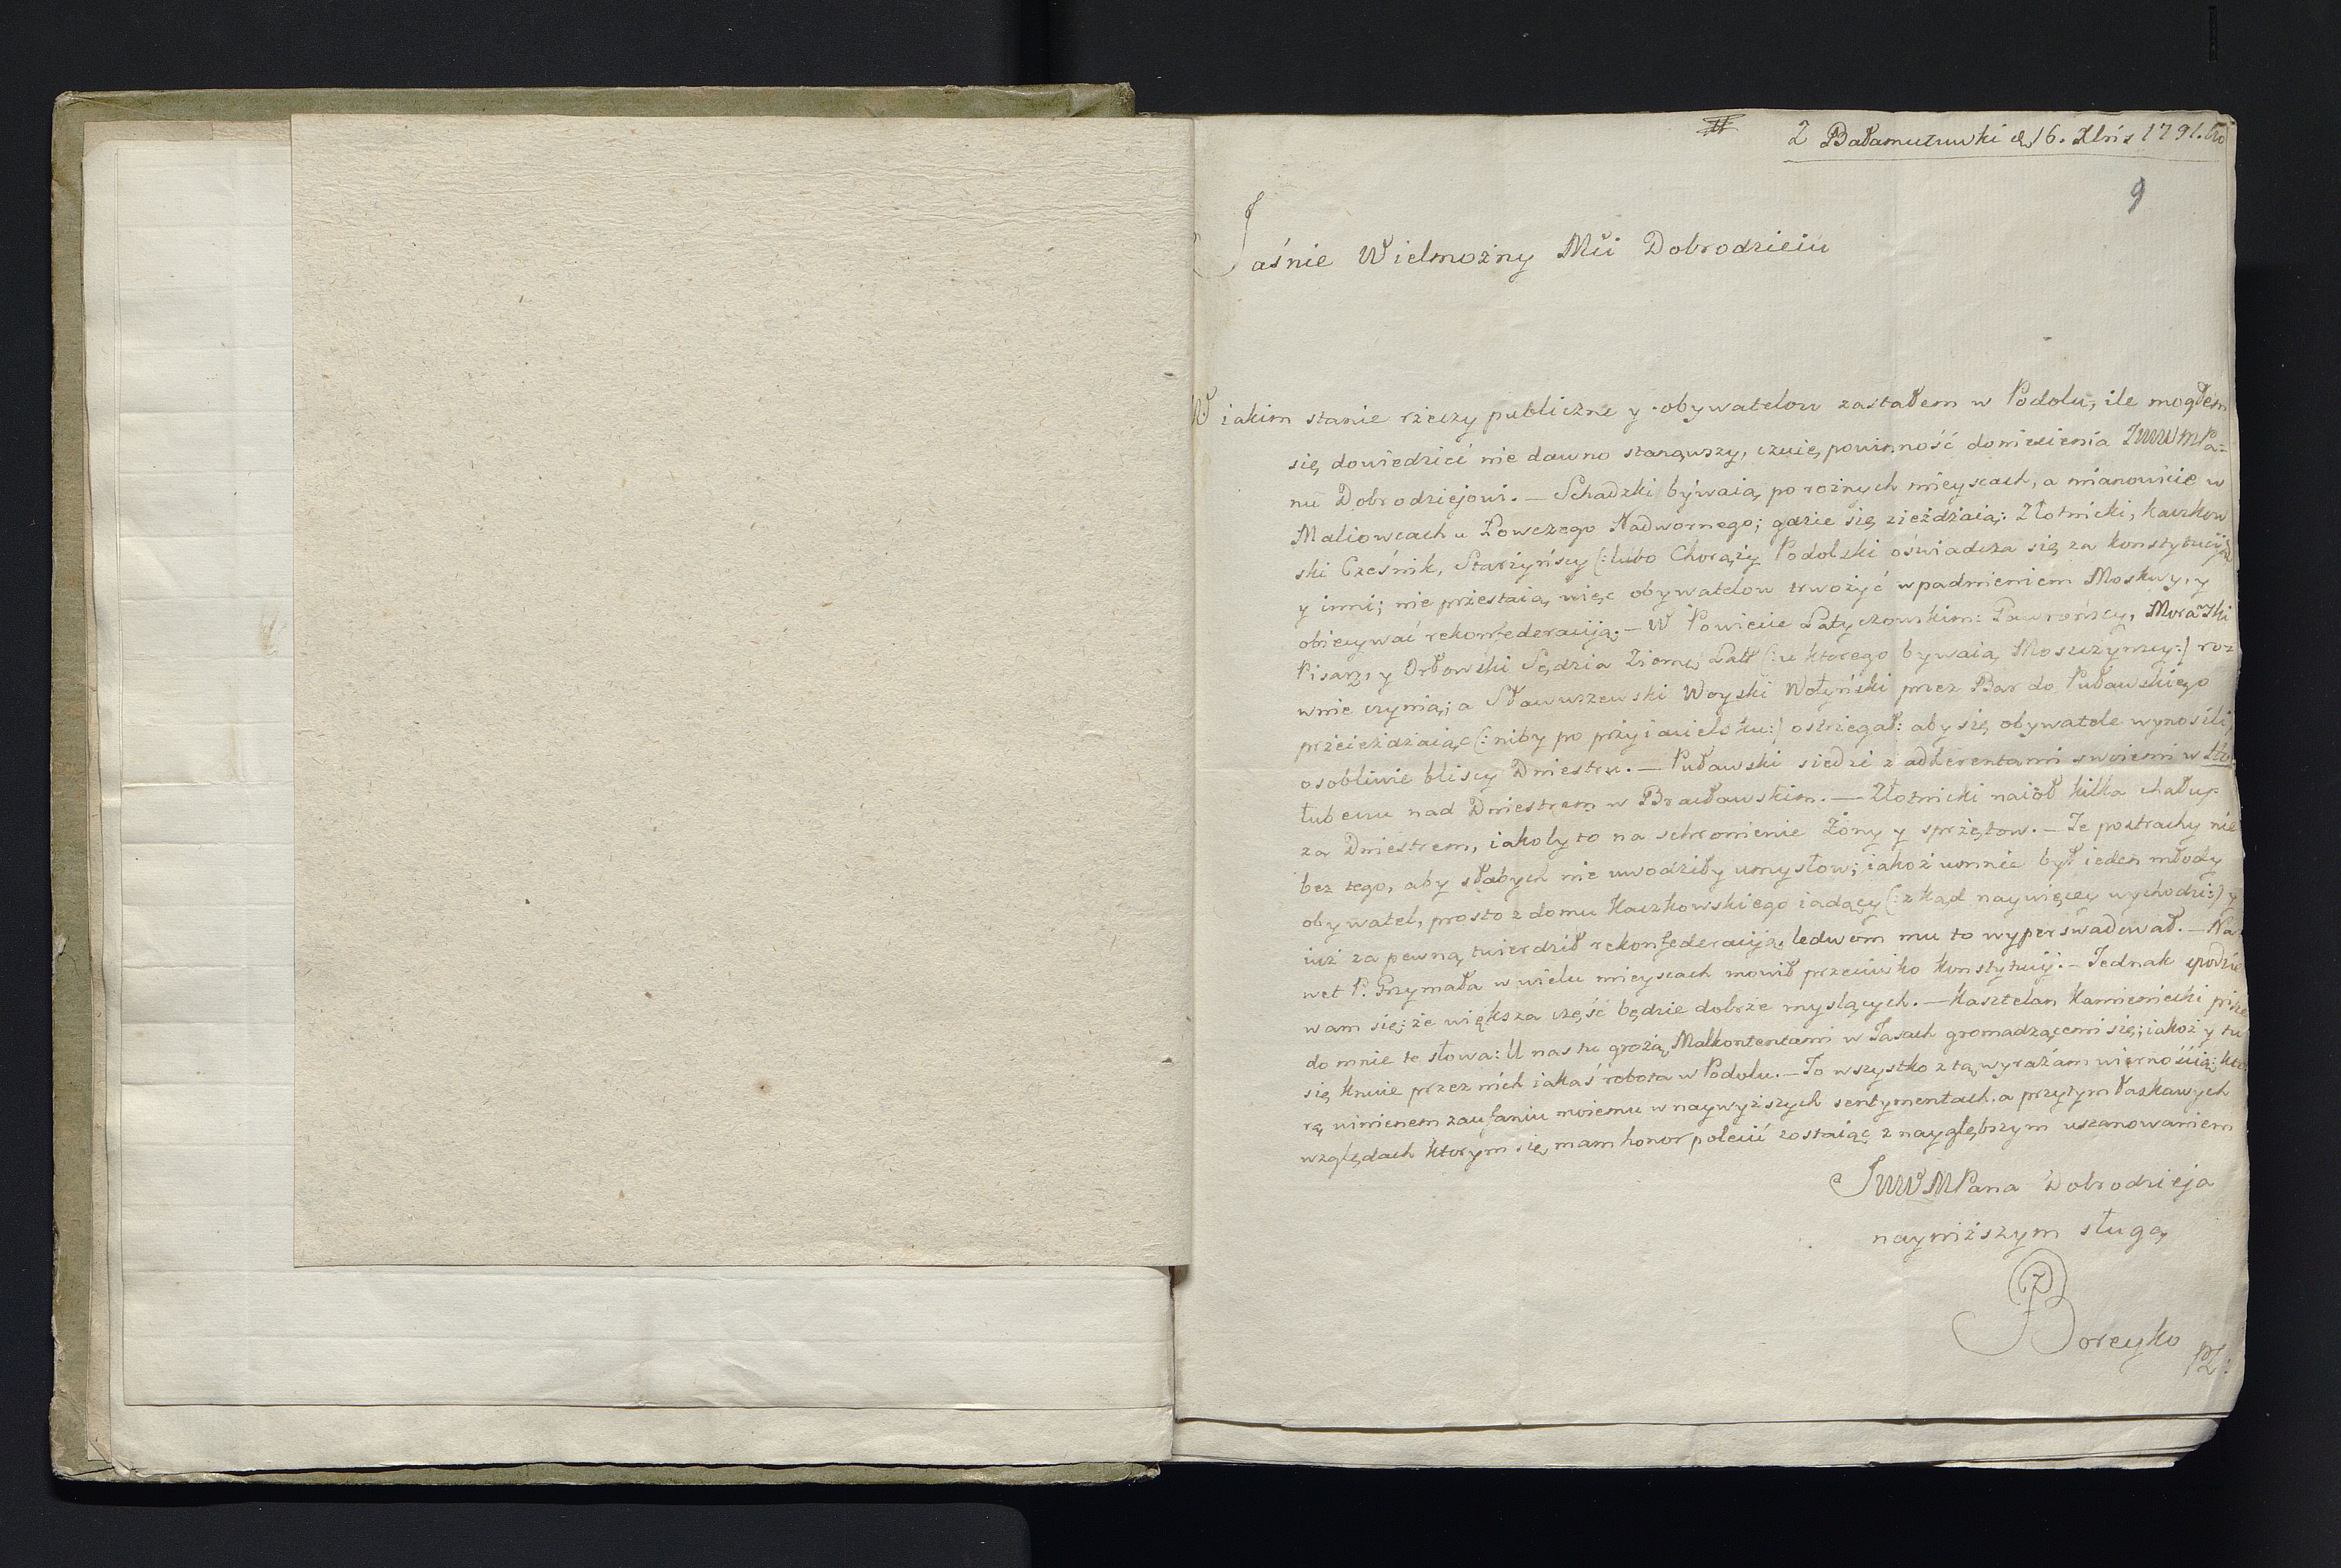 Z Bałamutuwki d. 16. Xbris 1791. Ro
9
Jaśnie Wielmożny Mci Dobrodzieiu
W iakim stanie rzeczy publiczne y obywatelow zastałem w Podolu, ile mogłem
się dowiedzieć nie dawno stanąwszy, czuię powinność doniesienia JWWMPa-
nu Dobrodziejowi. — Schadzki bywaią po rożnych mieyscach, a mianowicie w
Maliowcach u Łowczego Nadwornego; gdzie się zieżdżaią: Złotnicki, Kaczkow
ski Cześnik, Starzyńscy (: lubo Chorąży Podolski oświadcza się za Konstytucyią
y inni; nie przestaią więc obywatelow trwożyć wpadnieniem Moskwy, y
obiecywać rekonfederacyią. — W Powiecie Latyczowskim: Gawrońscy, Morski
Pisarz, y Orłowski Sędzia Ziems: Lat: (: u ktorego bywaią Moszczynscy :) roz
wnie czynią; a Sławuszewski Woyski Wołyński przez Bar do Puławskiego
przeieżdżaiąc (: niby po przyiacielsku :) ostrzegał: aby się obywatele wynosili,
osobliwie bliscy Dniestru. — Puławski siedzi z adherentami swoiemi w
łubecui nad Dniestrem w Bracławskim. — Złotnicki naiął kilka chałup
za Dniestrem, iakoby to na schronienie Żony y sprzętow. — Te postrachy nie
bez tego, aby słabych nie uwodziły umysłow; iakoż u mnie był ieden młody
obywatel, prosto z domu Kaczkowskiego iadący (: z kąd naywięcey wychodzi :) y
iuż za pewną twierdził rekonfederacyią, ledwom mu to wyperswadował. — Na-
wet P. Grzymała w wielu mieyscach mowił przeciwko Konstytucyi. — Jednak spodzie
wam się; że większa część będzie dobrze myslących. — Kasztelan Kamieniecki pisze
do mnie te słowa: U nas tu grożą Malkontentami w Jasach gromadzącemi się; iakoż y tu
się knuie przez nich iakaś robota w Podolu. — To wszystko z tą wyrażam wiernością; kto
rą winienem zaufaniu moiemu w naywyższych sentymentach, a przytym łaskawych
względach ktorym się mam honor polecić zostaiąc z naygłębszym uszanowaniem
JWWMPana Dobrodzieja
nayniższym sługą
Boreyko
PZ: